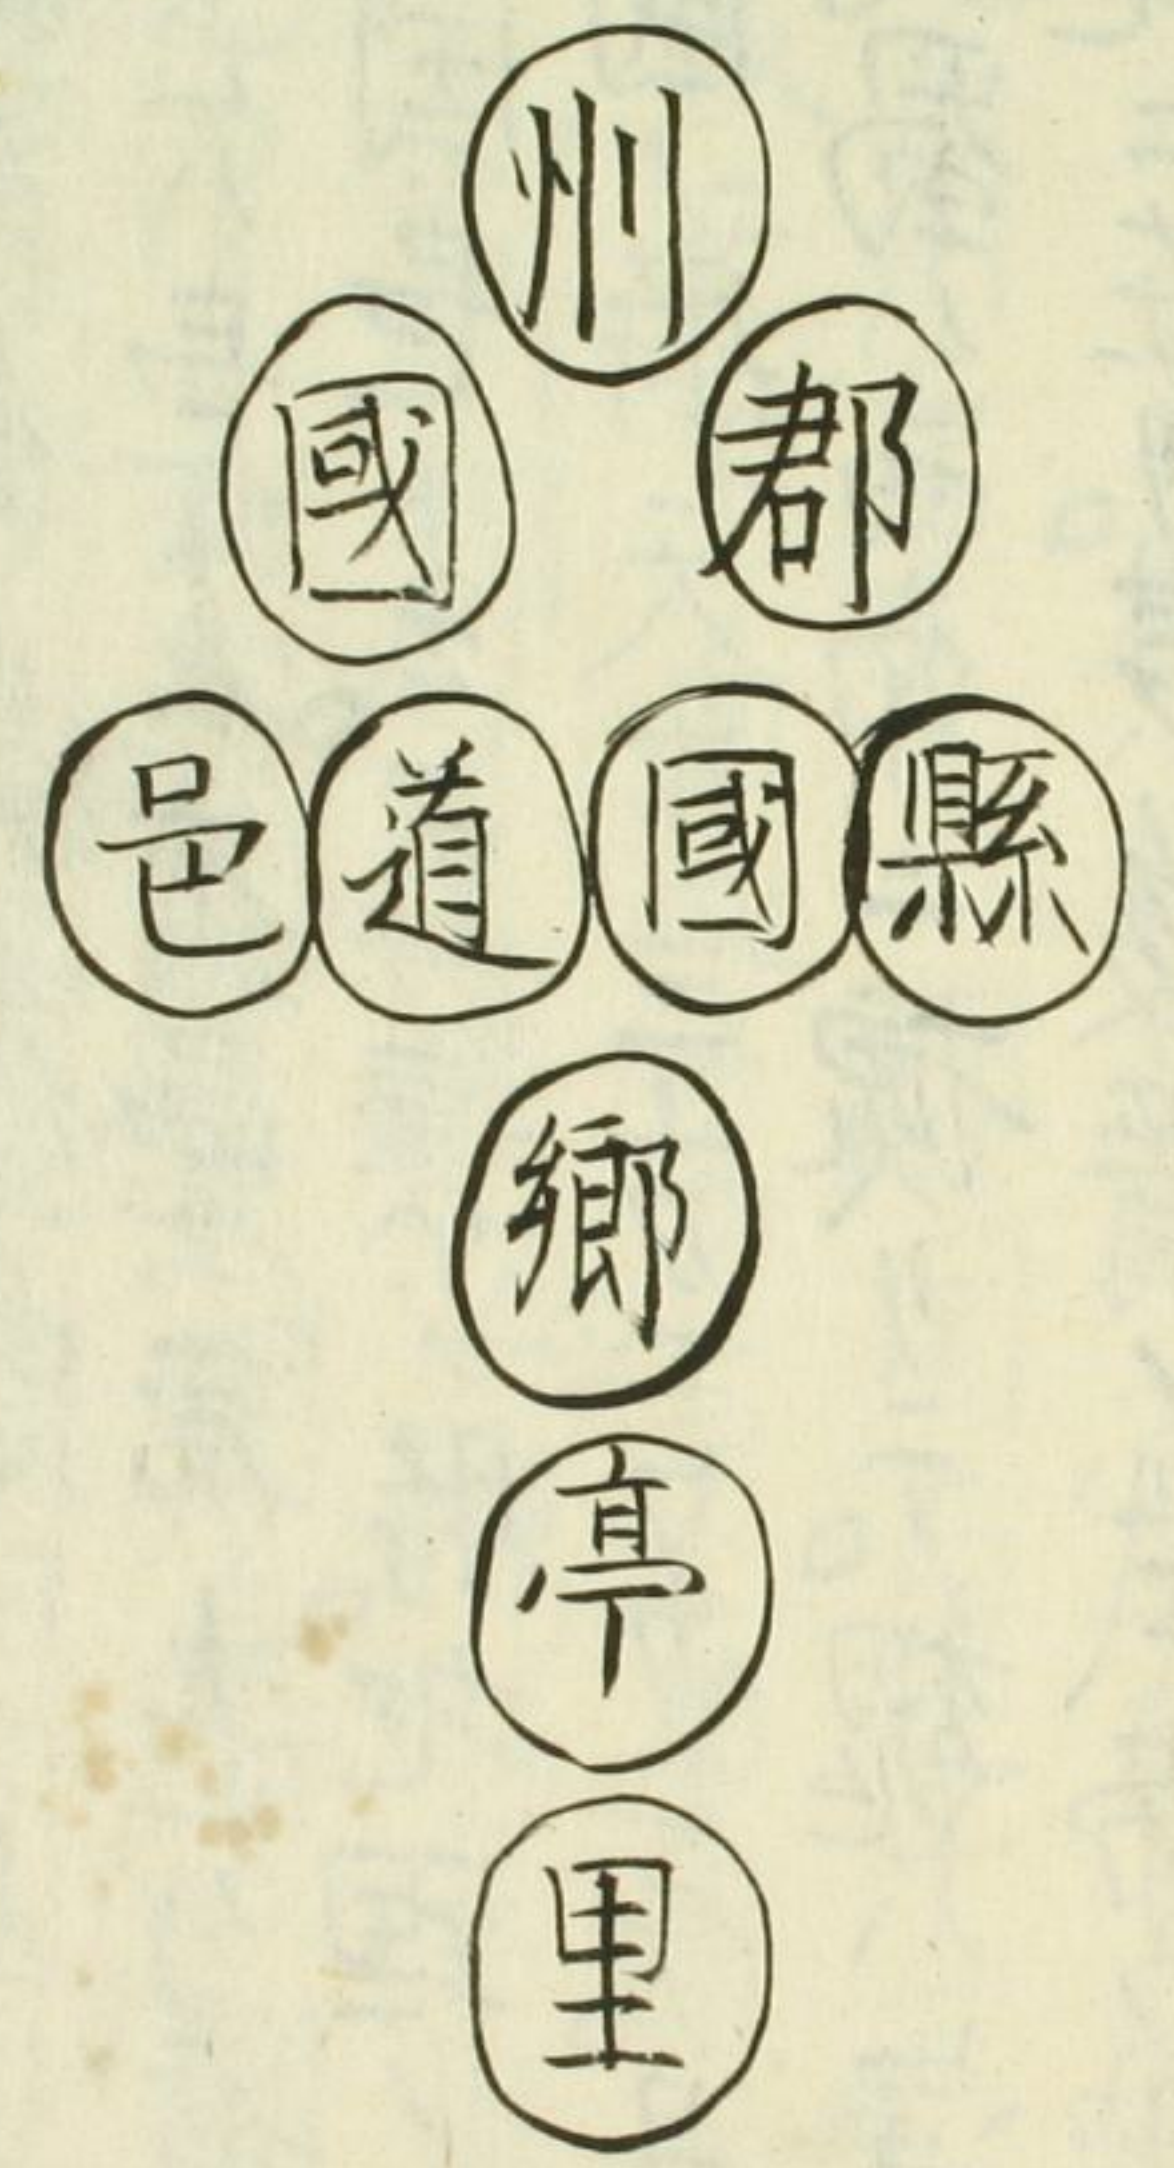 州
郡國
縣國道邑
鄉
亭
里